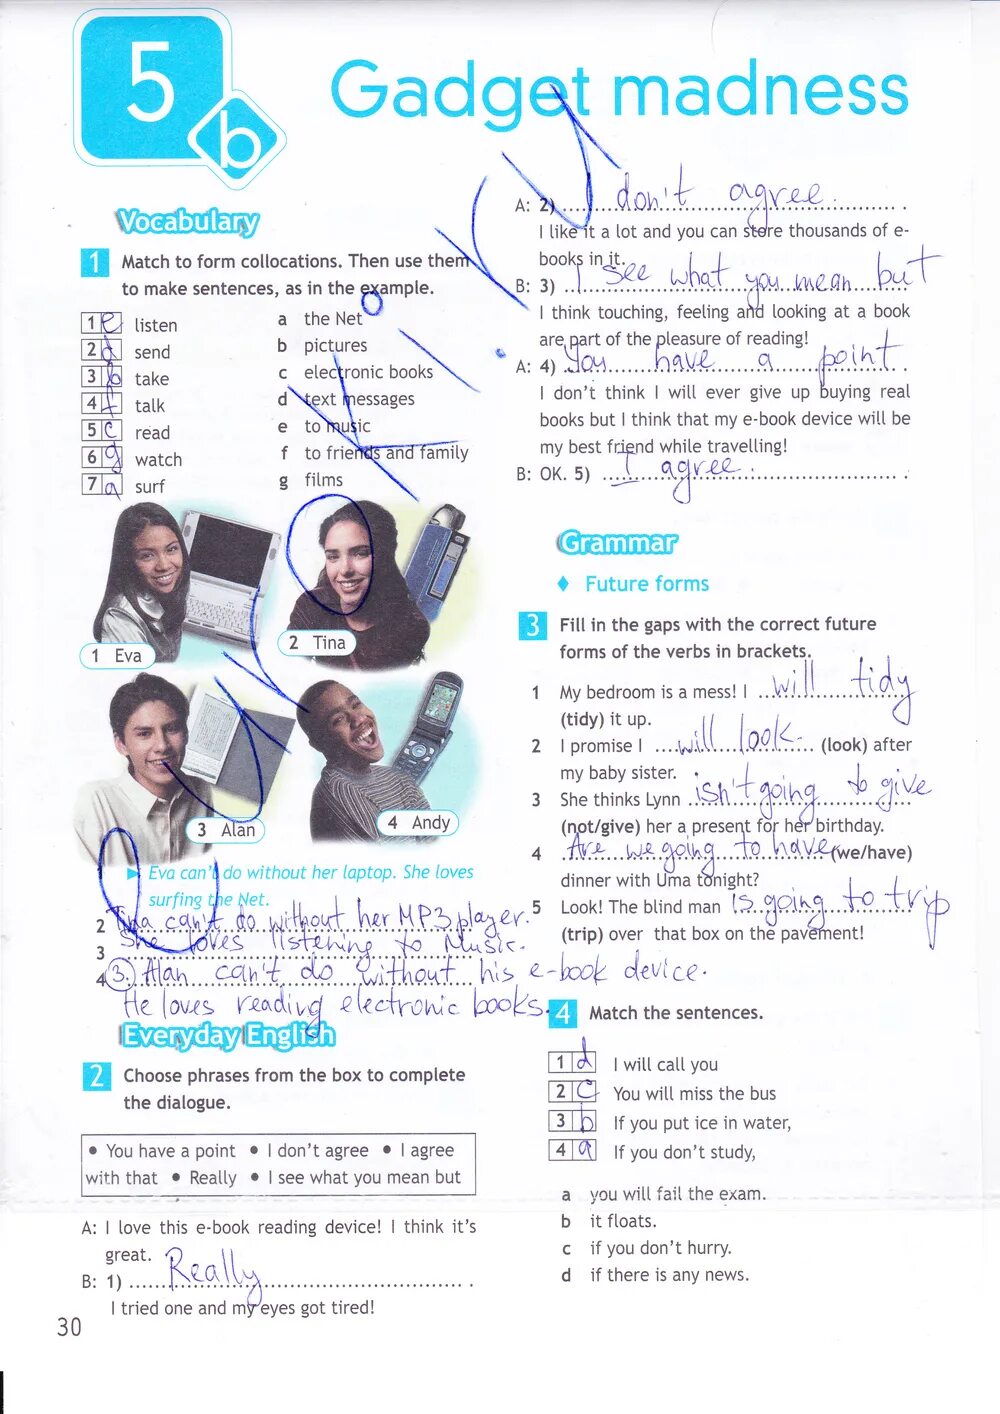 5
b
Gadget madness
Vocabulary
1 Match to form collocations. Then use them
to make sentences, as in the example.
1 e listen
2 d send
3 b take
4 f talk
5 c read
6 g watch
7 a surf
a the Net
b pictures
c electronic books
d text messages
e to music
f to friends and family
g films
1 Eva
2 Tina
3 Alan
4 Andy
Eva can't do without her laptop. She loves
surfing the Net.
2 Tina can't do without her MP3 player.
3 She loves listening to Music.
4 3. Alan can't do without his e-book device.
He loves reading electronic books.
Everyday English
2 Choose phrases from the box to complete
the dialogue.
• You have a point • I don't agree • I agree
with that • Really • I see what you mean but
A: I love this e-book reading device! I think it's
great.
B: 1) Really
I tried one and my eyes got tired!
30
A: 2) I don't agree.
I like it a lot and you can store thousands of e-
books in it.
B: 3) I see what you mean but
I think touching, feeling and looking at a book
are part of the pleasure of reading!
A: 4) You have a point
I don't think I will ever give up buying real
books but I think that my e-book device will be
my best friend while travelling!
B: OK. 5) I agree.
Grammar
♦ Future forms
3 Fill in the gaps with the correct future
forms of the verbs in brackets.
1 My bedroom is a mess! I will tidy
(tidy) it up.
2 I promise I will look (look) after
my baby sister.
3 She thinks Lynn isn't going to give
(not/give) her a present for her birthday.
4 Are we going to have (we/have)
dinner with Uma tonight?
5 Look! The blind man is going to trip
(trip) over that box on the pavement!
4 Match the sentences.
1 d I will call you
2 c You will miss the bus
3 b If you put ice in water,
4 a If you don't study,
a you will fail the exam.
b it floats.
c if you don't hurry.
d if there is any news.